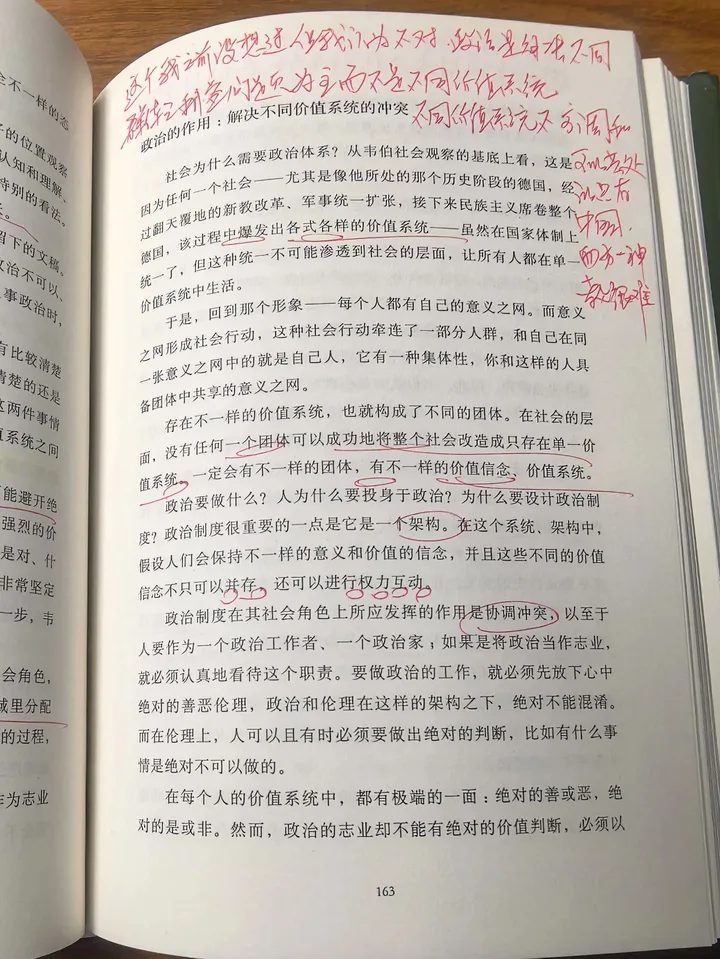 全不一样的态
子的位置观察
认知和理解、
特别的看法。
留下的文稿。
政治不可以、
事政治时,
有比较清楚
清楚的还是
这两件事情
值系统之间
可能避开绝
强烈的价
是对、什
非常坚定
一步,韦
会角色,
域里分配
的过程,
作为志业
这个我之前没想过 但我认为不对 政治是解决不同
群体之利益 为主而不是不同价值系统
不同价值系统不
中国,
政治的作用:解决不同价值系统的冲突
社会为什么需要政治体系?从韦伯社会观察的基底上看,这是
因为任何一个社会——尤其是像他所处的那个历史阶段的德国,经
过翻天覆地的新教改革、军事统一扩张,接下来民族主义席卷整个
德国,该过程中爆发出各式各样的价值系统——虽然在国家体制上
统一了,但这种统一不可能渗透到社会的层面,让所有人都在单一
价值系统中生活。
于是,回到那个形象——每个人都有自己的意义之网。而意义
之网形成社会行动,这种社会行动牵连了一部分人群,和自己在同
一张意义之网中的就是自己人,它有一种集体性,你和这样的人具
备团体中共享的意义之网。
存在不一样的价值系统,也就构成了不同的团体。在社会的层
面,没有任何一个团体可以成功地将整个社会改造成只存在单一价
值系统。一定会有不一样的团体,有不一样的价值信念、价值系统。
政治要做什么?人为什么要投身于政治?为什么要设计政治制
度?政治制度很重要的一点是它是一个架构。在这个系统、架构中,
假设人们会保持不一样的意义和价值的信念,并且这些不同的价值
信念不只可以并存,还可以进行权力互动。
政治制度在其社会角色上所应发挥的作用是协调冲突,以至于
人要作为一个政治工作者、一个政治家;如果是将政治当作志业,
就必须认真地看待这个职责。要做政治的工作,就必须先放下心中
绝对的善恶伦理,政治和伦理在这样的架构之下,绝对不能混淆。
而在伦理上,人可以且有时必须要做出绝对的判断,比如有什么事
情是绝对不可以做的。
在每个人的价值系统中,都有极端的一面:绝对的善或恶,绝
对的是或非。然而,政治的志业却不能有绝对的价值判断,必须以
163